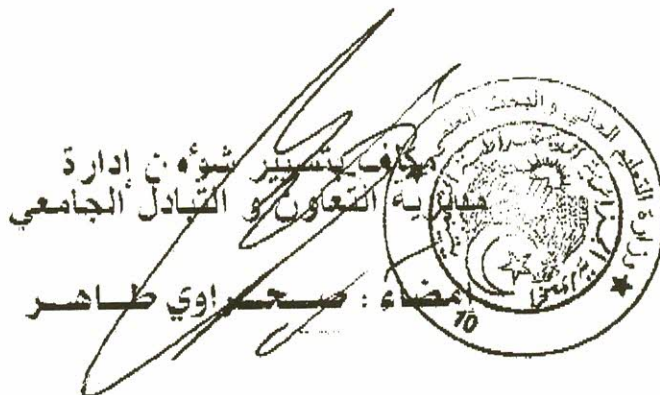 مكلف بتسيير شؤون إدارة
مديرية التعاون و التبادل الجامعي
إمضاء : صحراوي طاهر
وزارة التعليم العالي والبحث العلمي
10